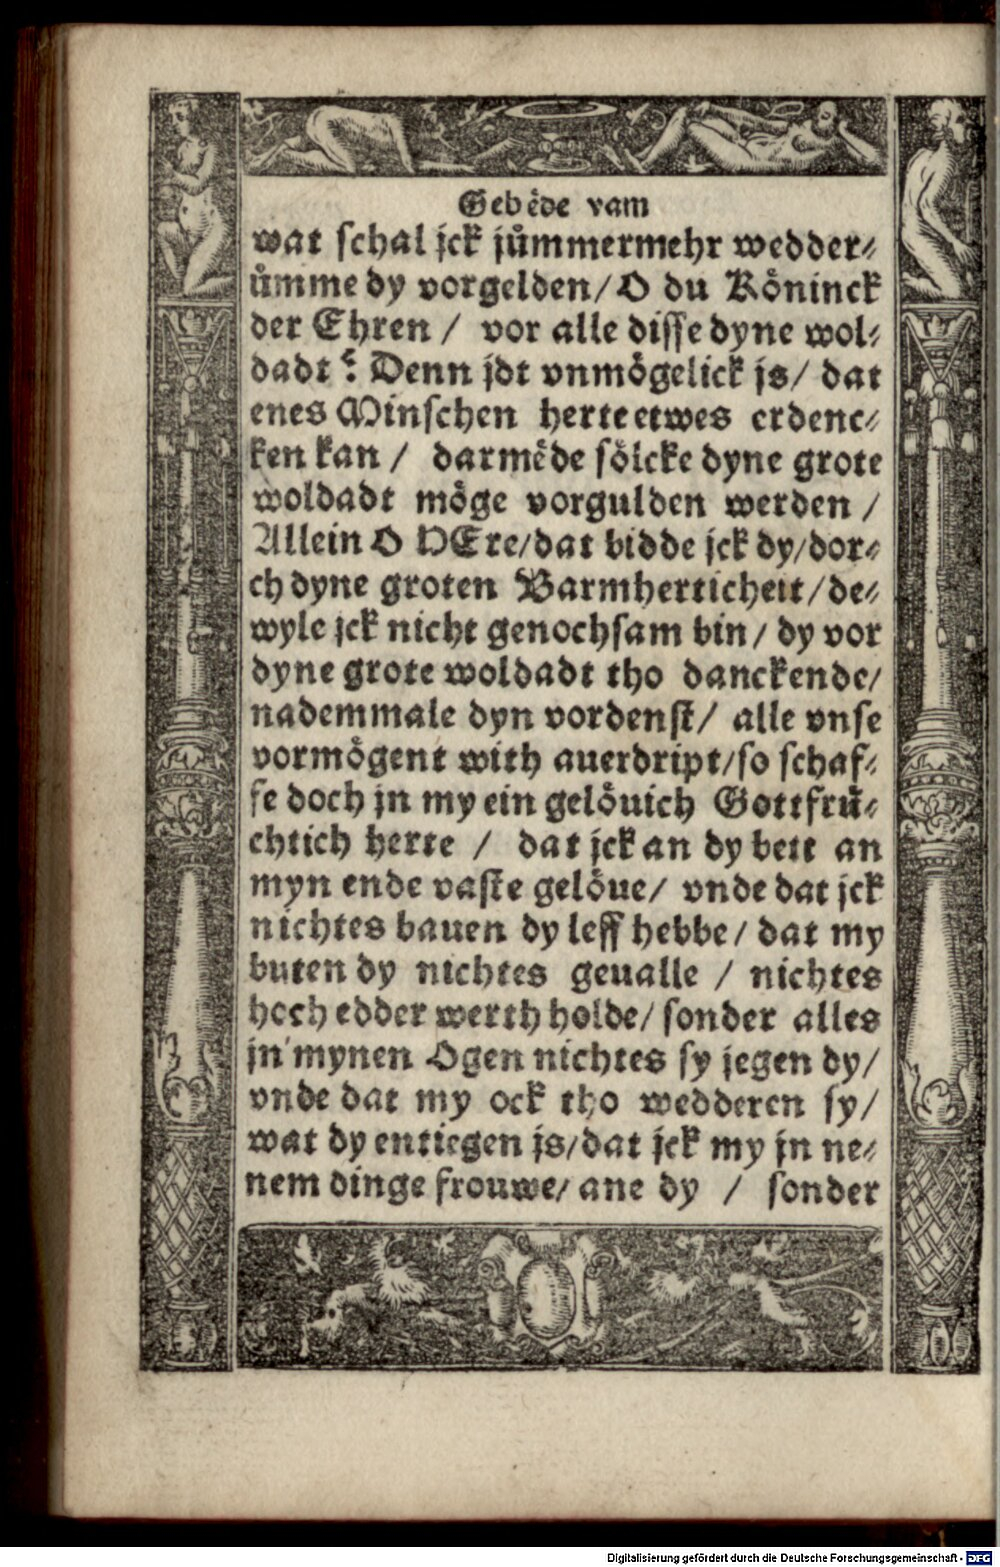 Gebêde vam
wat schal jck jůmmermehr wedder⸗
ůmme dy vorgelden/ O du Köninck
der Ehren / vor alle disse dyne wol⸗
dadt? Denn jdt vnmögelick js/ dat
enes Minschen herte etwes erdenc⸗
ken kan / darmêde sölcke dyne grote
woldadt möge vorgulden werden /
Allein O HEre/dat bidde jck dy/dor⸗
ch dyne groten Barmherticheit/de⸗
wyle jck nicht genochsam bin/ dy vor
dyne grote woldadt tho danckende/
nademmale dyn vordenst/ alle vnse
vormögent with auerdript/so schaf⸗
fe doch jn my ein gelöuich Gottfrů⸗
chtich herte / dat jck an dy bett an
myn ende vaste gelöue/ vnde dat jck
nichtes bauen dy leff hebbe/ dat my
buten dy nichtes geualle / nichtes
hoch edder werth holde/ sonder alles
jn mynen Ogen nichtes sy jegen dy/
vnde dat my ock tho wedderen sy/
wat dy entiegen js/dat jck my jn ne⸗
nem dinge frouwe/ ane dy / sonder
Digitalisierung gefördert durch die Deutsche Forschungsgemeinschaft - DFG